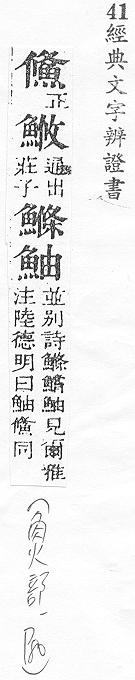 41 經典文字辨證書
鯈正
通出莊子
鰷鮋並別詩鰷鱨鮋見爾雅
注陸德明曰鮋鯈同
(魚部